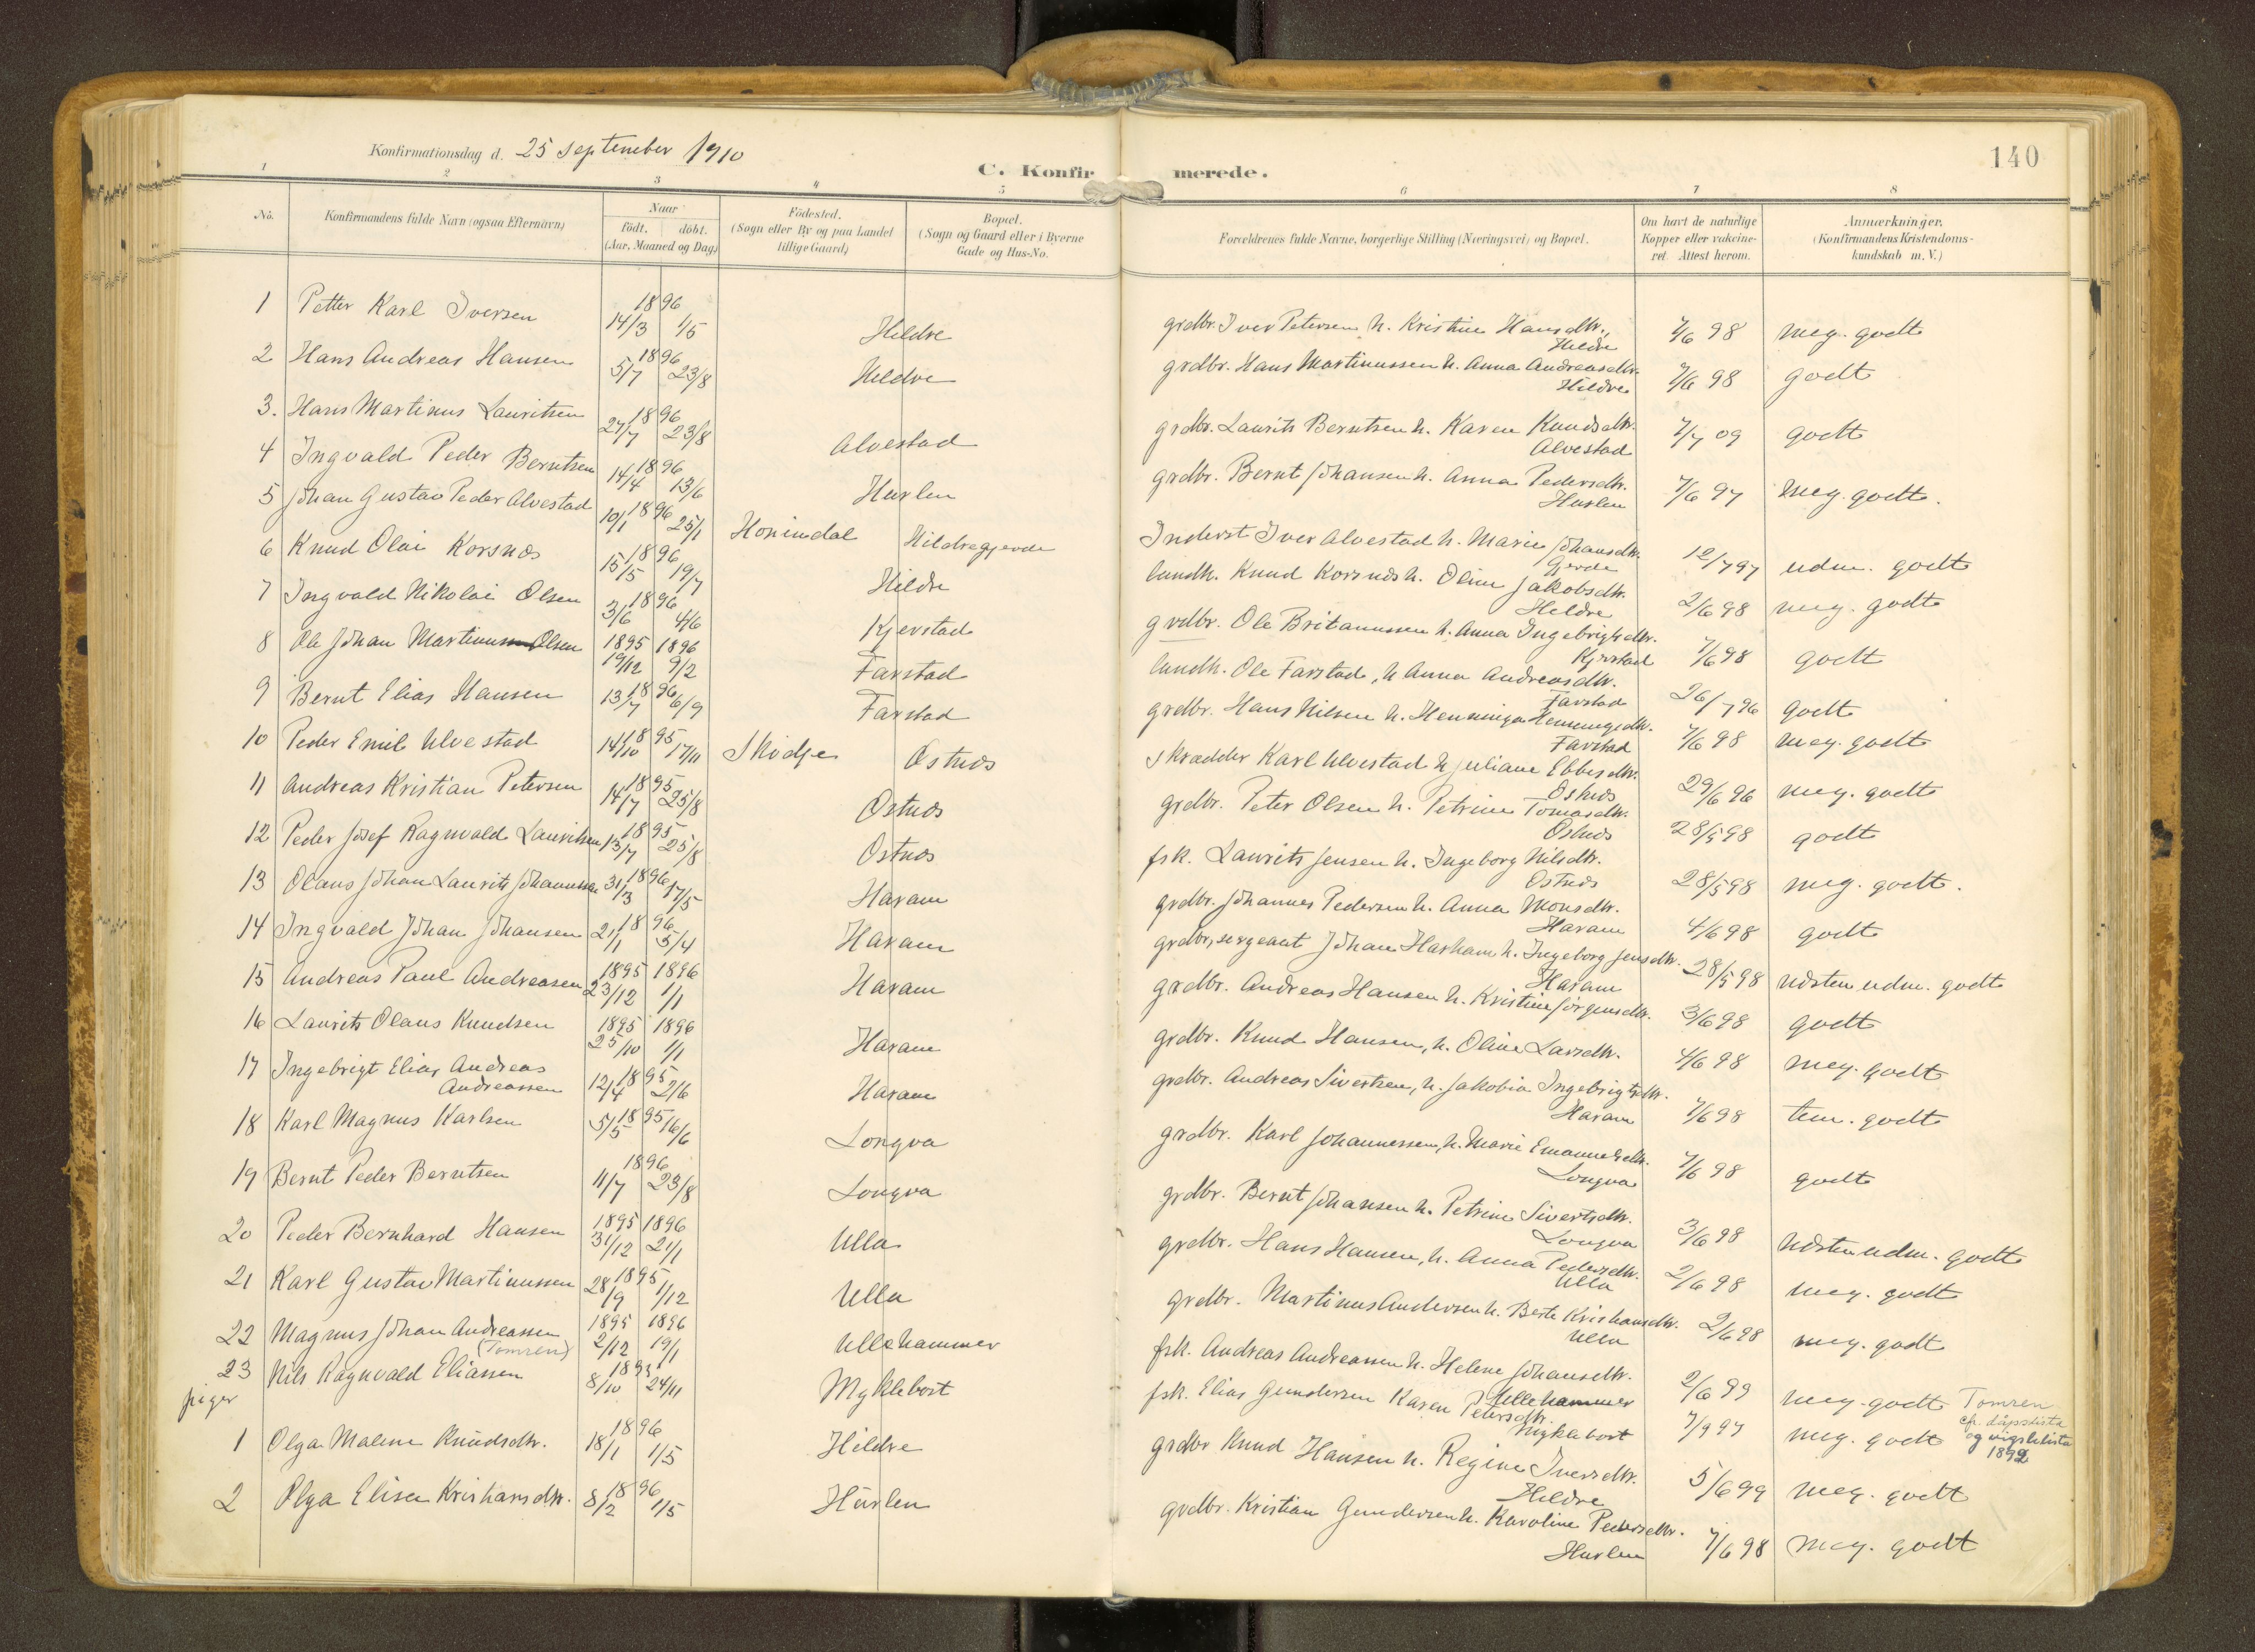 Konfirmationsdag d. 25 september 1910
C. Konfirmerede.
140
1 2 3 4 5 6 7 8
No.
Konfirmandens fulde Navn (ogsaa Efternavn)
Naar
födt. döbt.
(Aar, Maaned og Dag)
Födested.
(Sogn eller By og paa Landet
tillige Gaard)
Bopæl.
(Sogn og Gaard eller i Byerne
Gade og Hus-No.
Forældrenes fulde Navne, borgerlige Stilling (Næringsvei) og Bopæl.
Om havt de naturlige
Kopper eller vakcine-
ret. Attest herom.
Anmærkninger.
(Konfirmandens Kristendoms-
kundskab m. V.)
1 Petter Karl Iversen 1896 14/3 1/5 Hildre grdbr. Iver Petersen h. Kristine Hansdtr. Hildre 7/6 98 meg. godt
2 Hans Andreas Hansen 1896 5/7 23/8 Hildre grdbr. Hans Martinussen h. Anna Andreasdtr. Hildre 7/6 98 godt
3. Hans Martinus Lauritsen 1896 27/7 23/8 Alvestad grdbr. Laurits Berntsen h. Karen Knudsdtr. Alvestad 7/7 09 godt
4 Ingvald Peder Berntsen 1896 14/4 13/6 Hurlen grdbr. Bernt Johansen h. Anna Pedersdtr. Hurlen 7/6 97 meg. godt.
5 Johan Gustav Peder Alvestad 1896 10/1 25/1 Honindal Hildregjerde Inderst Iver Alvestad h. Marie Johansdtr. Gjerde 12/7 97 udm. godt
6 Knud Olai Korsnes 1896 15/5 19/7 Hildre landh. Knud Korsnes h. Oline Jakobsdtr. Hildre 2/6 98 meg. godt
7 Ingvald Nikolai Olsen 1896 3/6 4/6 Kjerstad grdbr. Ole Britanussen h. Anna Ingebrigtsdtr. Kjerstad 7/6 98 godt
8 Ole Johan Martinus Olsen 1895 1896 19/12 9/2 Farstad landh. Ole Farstad, h Anna Andreasdtr. Farstad 26/7 96 godt
9 Bernt Elias Hansen 1896 13/7 6/9 Farstad grdbr. Hans Nilsen h. Henninga Henningsdtr. Farstad 7/6 98 meg. godt
10 Peder Emil Ulvestad 1895 14/10 17/11 Skodje Østnes skrædder Karl Ulvestad h Juliane Ebbesdtr. Østnes 29/6 96 meg. godt
11 Andreas Kristian Petersen 1895 14/7 25/8 Østnes grdbr. Peter Olsen h. Petrine Tomasdtr. Østnes 28/5 98 godt
12 Peder Josef Ragnvald Lauritsen 1895 13/7 25/8 Østnes fsk. Laurits Jensen h. Ingeborg Nilsdtr. Østnes 28/5 98 meg. godt.
13 Olaus Johan Laurits Johannessen 1896 31/3 17/5 Haram grdbr. Johannes Pedersen h. Anna Monsdtr. Haram 4/6 98 godt
14 Ingvald Johan Johansen 1896 21/1 5/4 Haram grdbr, sergeant Johan Harham h. Ingeborg Jensdtr. Haram 28/5 98 næsten udm. godt
15 Andreas Paul Andreasen 1895 1896 23/12 1/1 Haram grdbr. Andreas Hansen h. Kristine Jørgensdtr. 3/6 98 godt
16 Laurits Olaus Knudsen 1895 1896 25/10 1/1 Haram grdbr. Knud Hansen, h. Oline Larsdtr. 4/6 98 meg. godt
17 Ingebrigt Elias Andreas
Andreassen 1895 12/4 2/6 Haram grdbr. Andreas Sivertsen, h. Jakobia Ingebrigtsdtr. Haram 7/6 98 tem. godt
18 Karl Magnus Karlsen 1895 5/5 16/6 Longva grdbr. Karl Johannessen, h. Marie Emanuelsdtr. Longva 7/6 98 godt
19 Bernt Peder Berntsen 1896 11/7 23/8 Longva grdbr. Bernt Johansen h. Petrine Sivertsdtr. Longva 3/6 98 næsten udm. godt
20 Peder Bernhard Hansen 1895 1896 31/12 21/1 Ulla grdbr. Hans Hansen, h. Anna Pedersdtr. Ulla 2/6 98 meg. godt
21 Karl Gustav Martinussen 1895 28/9 1/12 Ulla grdbr. Martinus Andersen h. Berte Kristiansdtr. Ulla 2/6 98 meg. godt
22 Magnus Johan Andreassen
(Tomren) 1895 1896 2/12 19/1 Ullehammer fsk. Andreas Andreassen h. Helene Johansdtr. Ullehammer 2/6 99 meg. godt Tomren
cfr. dåpslista
og vigslelista
1892
23 Nils Ragnvald Eliassen 1895 8/10 24/11 Myklebost fsk. Elias Gundersen Karen Petersdtr. Myklebost 7/9 97 meg. godt
piger
1 Olga Maline Knudsdtr. 1896 18/1 1/5 Hildre grdbr Knud Hansen h. Regine Iversdtr. Hildre 5/6 99 meg. godt
2 Olga Elise Kristiansdtr. 1896 8/2 1/5 Hurlen grdbr. Kristian Gundersen h. Karoline Pedersdtr. Hurlen 7/6 98 meg. godt